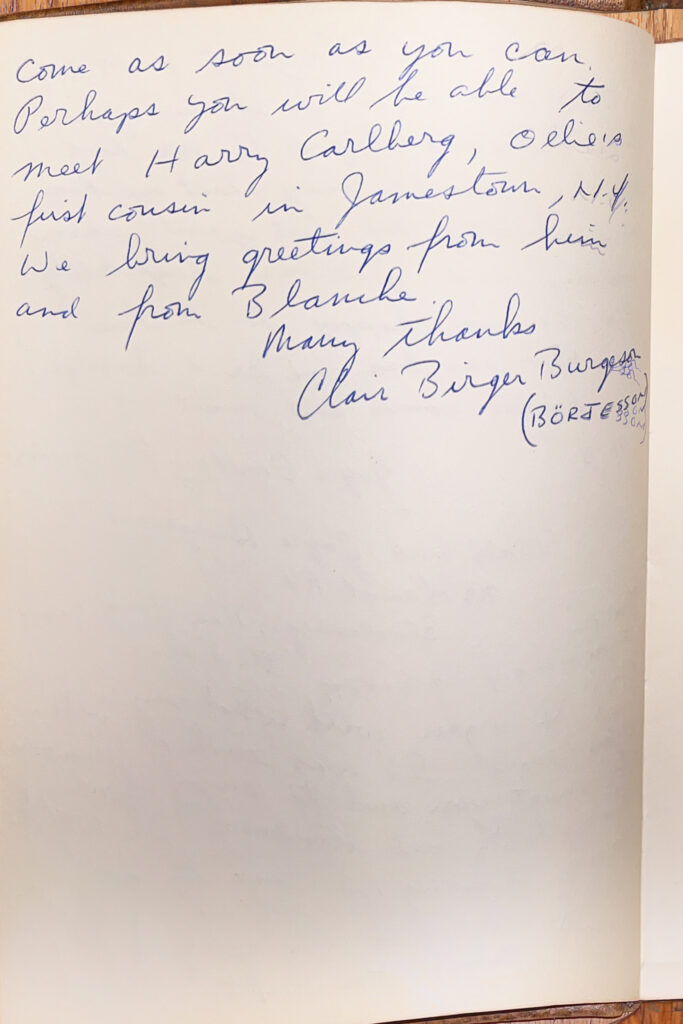 come as soon as you can.
Perhaps you will be able to
meet Harry Carlberg, Oelie's
first cousin in Jamestown, N.Y.
We bring greetings from him
and from Blanche.
Many thanks
Clair Birger Burgeson
(BÖRJESSON)